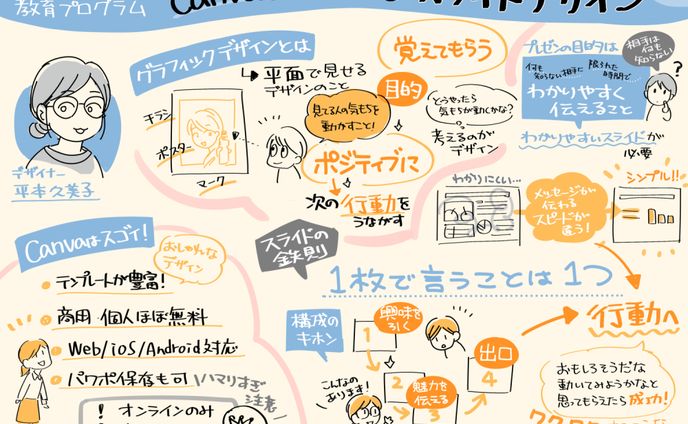 教育プログラム
Canva
スライドデザイン
デザイナー
平本久美子
グラフィックデザインとは
平面で見せる
デザインのこと
チラシ
ポスター
マーク
目的
見てる人の気もちを
動かすこと!
覚えてもらう
どうやったら
気もちが動くかな?
考えるのが
デザイン
ポジティブに
次の行動を
うながす
プレゼンの目的は
相手は
何も
知らない
?
何も
知らない相手に
限られた
時間で…
わかりやすく
伝えること
わかりやすいスライドが
必要
わかりにくい…
メッセージが
伝わる
スピードが
違う!
シンプル!!
Canvaはスゴイ!
おしゃれな
デザイン
• テンプレートが豊富!
• 商用 個人ほぼ無料
• Web/iOS/Android対応
• パワポ保存も可
ハマりすぎ
注意
! オンラインのみ
スライドの
鉄則
1枚で言うことは1つ
構成の
キホン
1
興味を
引く
2
魅力を
伝える
3
出口
4
こんなの
あります!
行動へ
おもしろそうだな
動いてみようかなと
思ってもらえたら成功!